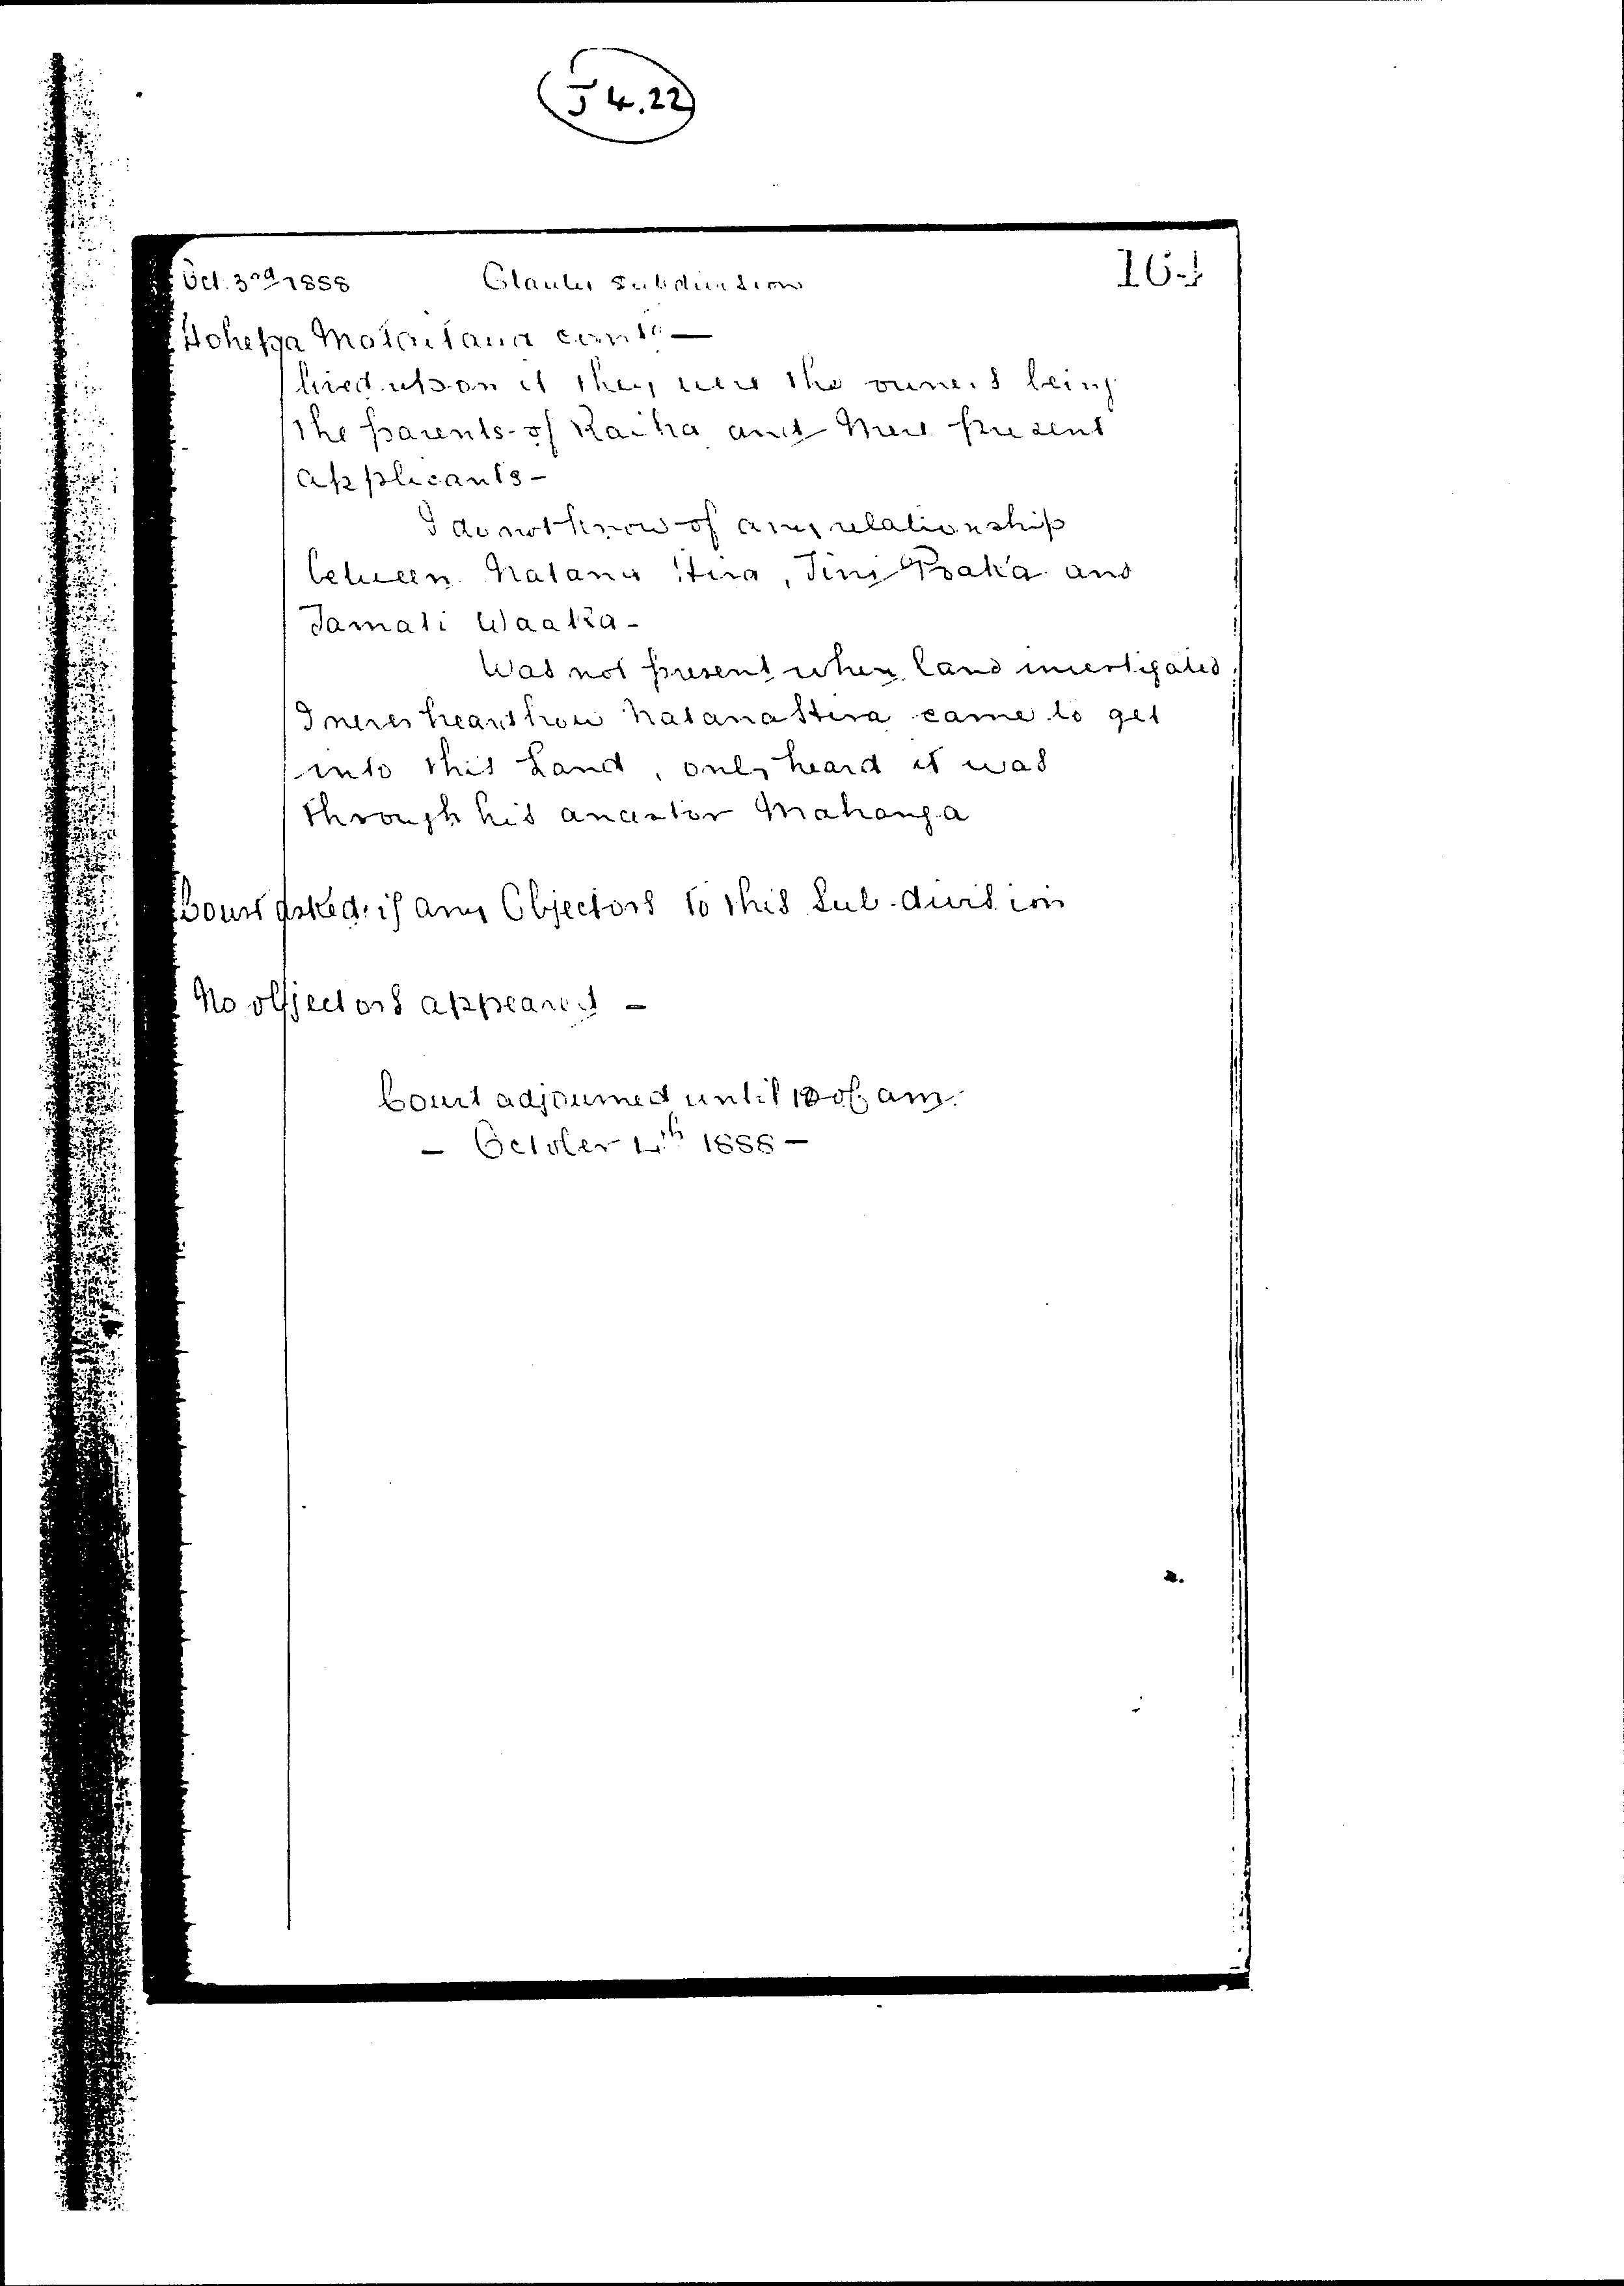 J 4.22
Oct. 3rd 1888 Subdivision 164
Hohepa Mataitaua contd —
lived upon it they were the owners being
the parents of Raiha and Mere present
applicants -
I do not know of any relationship
between Natana Hira, Tini and
Tamati Waaka -
Was not present when land investigated
I never heard how Natana Hira came to get
into this Land, only heard it was
through his ancestor Mahanga
Court asked if any Objectors to this Sub-division
No objectors appeared -
Court adjourned until 10 o/c am.
- October 4th 1888 -